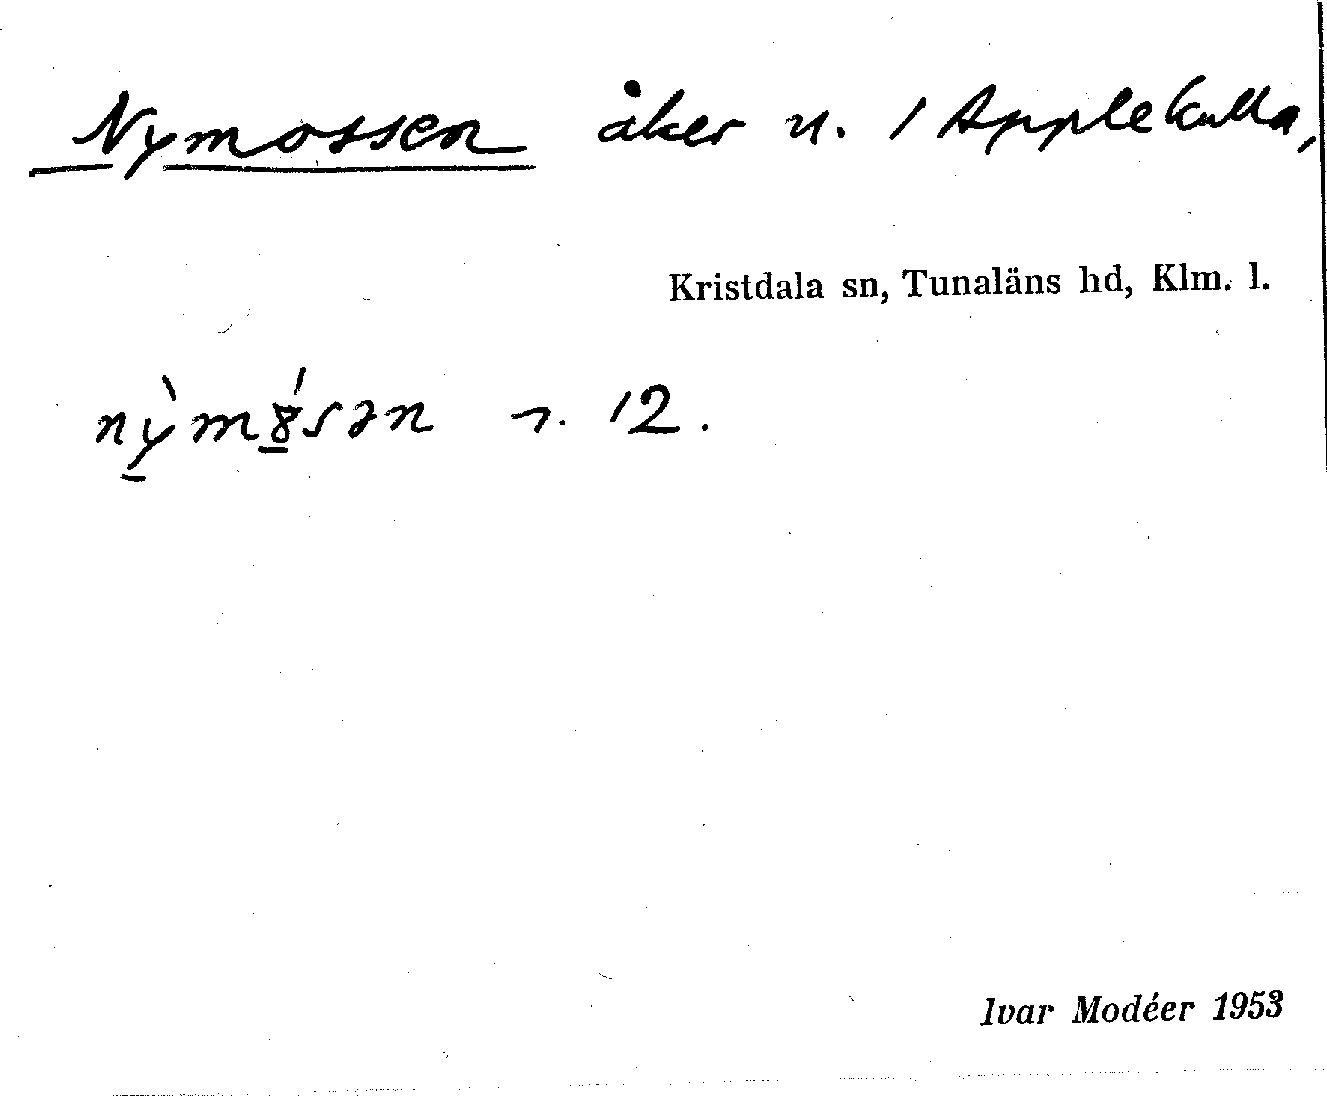 Nymossen åker n. / Applekulla,
Kristdala sn, Tunaläns hd, Klm. l.
12.
Ivar Modéer 1953